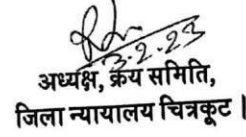 3.2.23
अध्यक्ष, क्रय समिति,
जिला न्यायालय चित्रकूट।